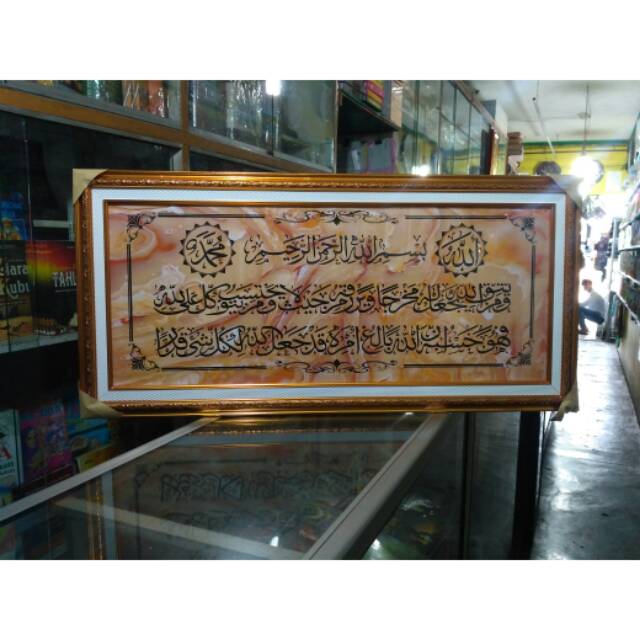 الله
بسم الله الرحمن الرحيم
محمد
ومن يتق الله يجعل له مخرجا ويرزقه من حيث لا يحتسب ومن يتوكل على الله
فهو حسبه ان الله بالغ امره قد جعل الله لكل شيء قدرا
TAHL